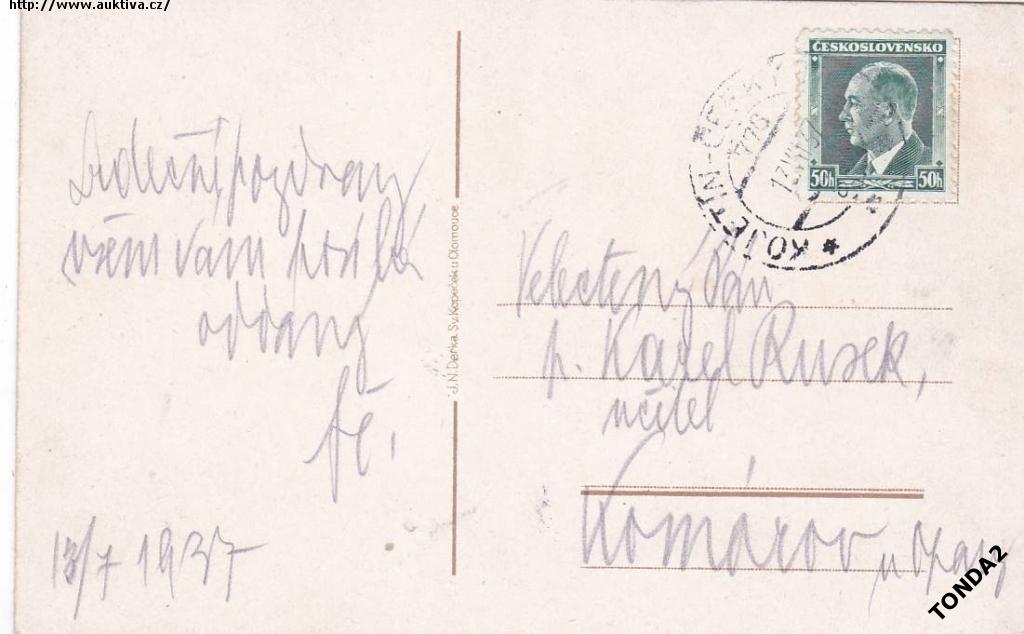 http://www.auktiva.cz/
Srdečný pozdrav
všem vám posílá
oddaný
13/7 1937
J.N. Derka, Sv. Kopeček u Olomouce
ČESKOSLOVENSKO
50h 50h
KOJETÍN
Velectěný Pán
p. Karel Rusek,
učitel
Komárov
u Opavy
TONDA2